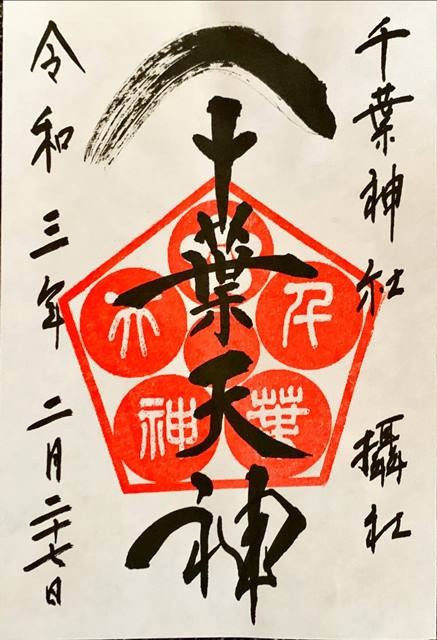 千葉神社 攝社
千葉天神
千葉天神
令和三年 二月二十七日